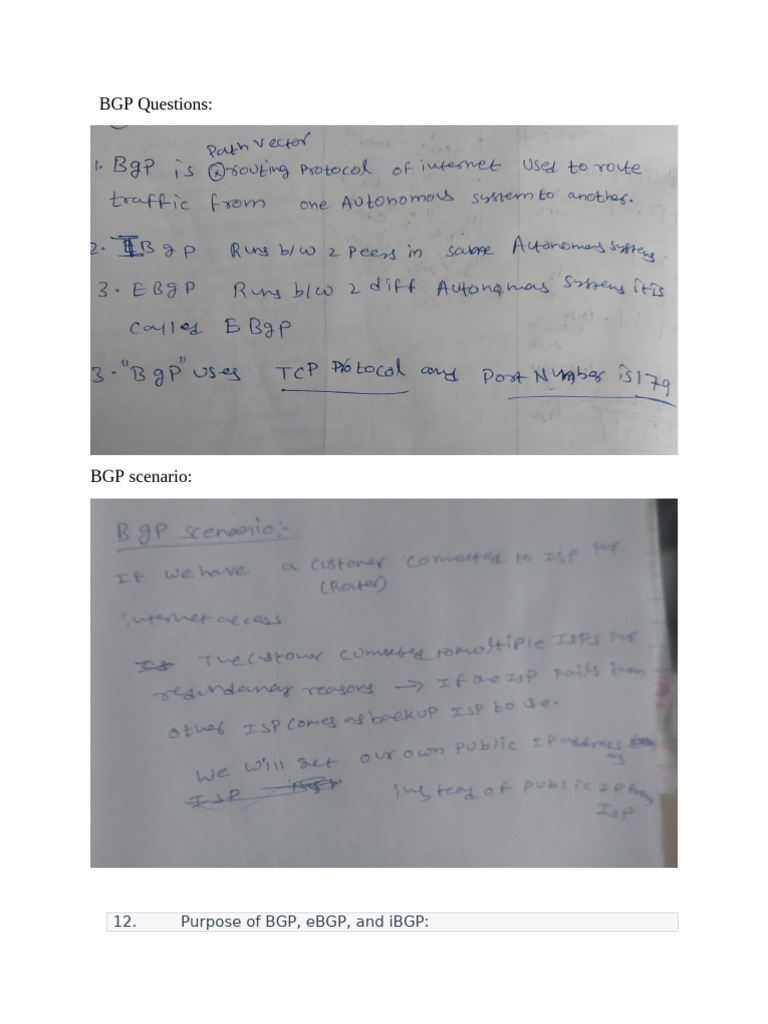 BGP Questions:
Path Vector
1. BgP is routing Protocol of internet used to route
traffic from one Autonomous system to another.
2. IBgP Runs b/w 2 peers in same Autonomous systems
3. EBgP Runs b/w 2 diff Autonomas systems it is
called EBgP
3. "BgP" uses TCP Protocol and Port Number is 179
BGP scenario:
BgP scenario:-
If we have a customer connected to ISP for
(Router)
internet access
The customer connected to multiple ISPs for
redundancy reasons → If one ISP fails then
other ISP comes as backup ISP to use.
We will get our own public IP address
ISP instead of public IP from
ISP
12. Purpose of BGP, eBGP, and iBGP: